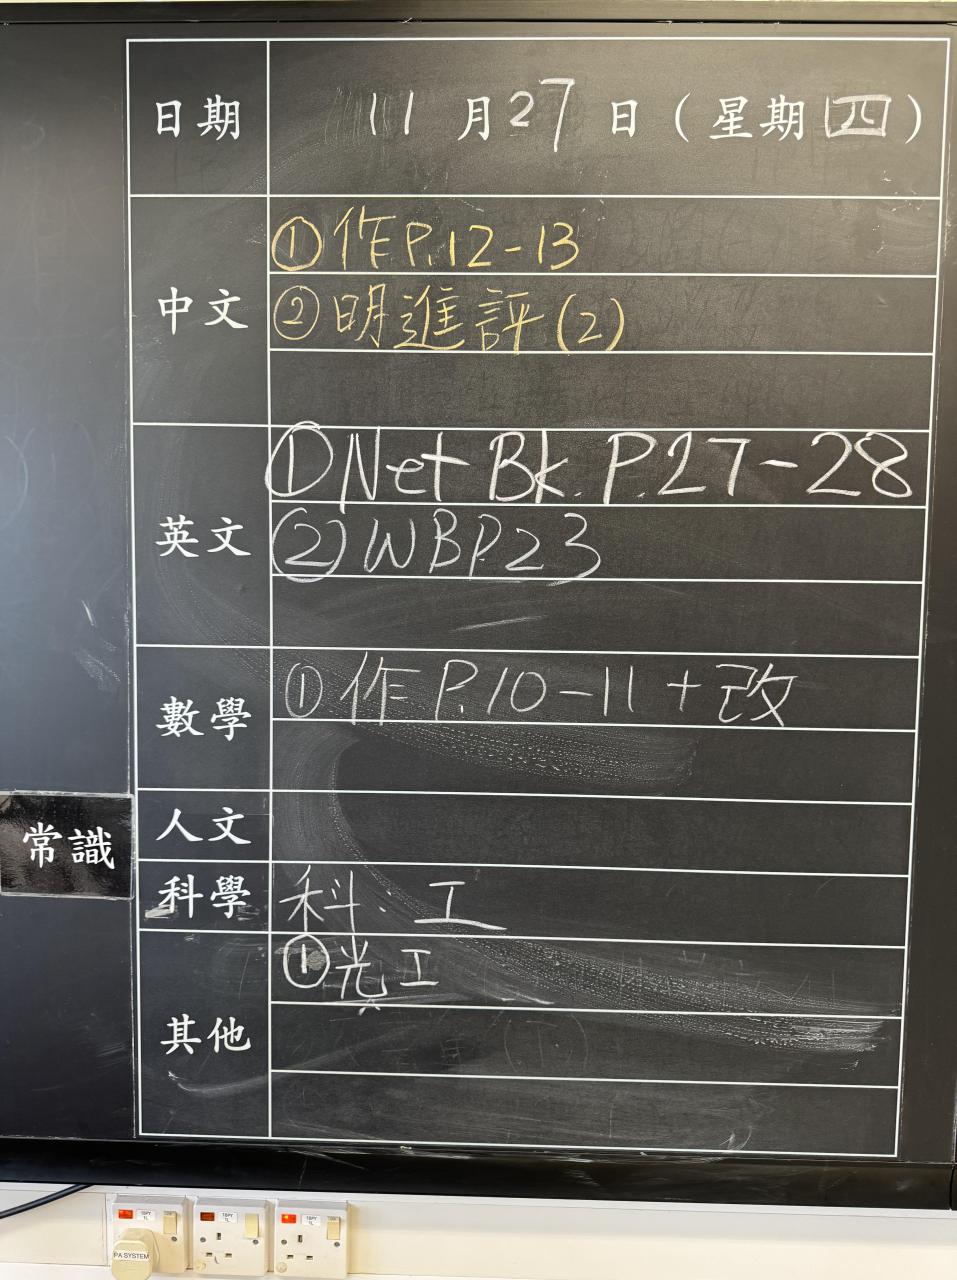 日期 11月27日(星期四)
中文 ①作P.12-13
②明進評(2)
英文 ①Net Bk. P.27-28
②WBP23
數學 ①作P.10-11+改
人文
常識
科學 科.工
其他 ①光工
PA SYSTEM